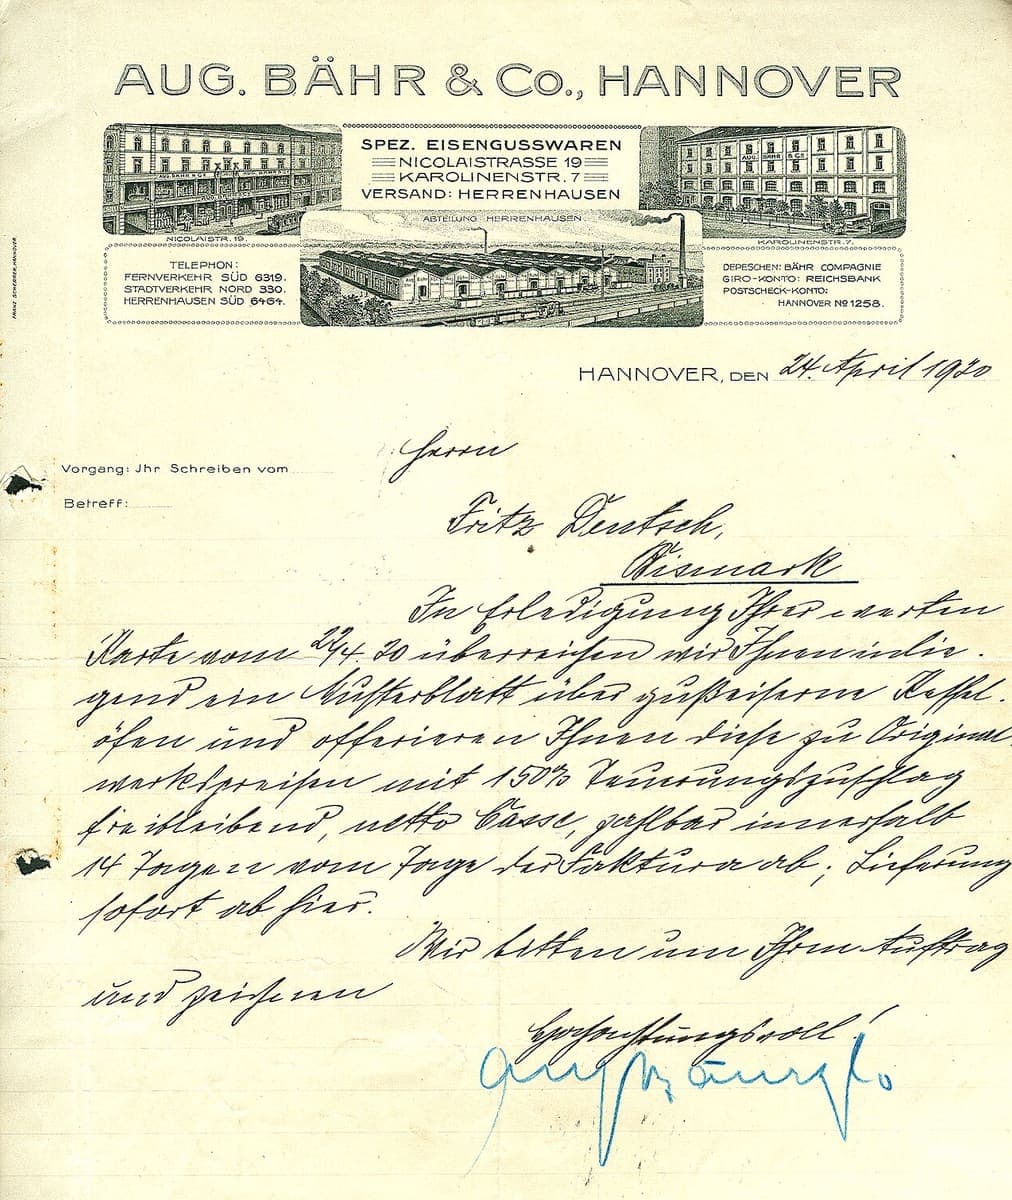 AUG. BÄHR & Co., HANNOVER
SPEZ. EISENGUSSWAREN
NICOLAISTRASSE 19
KAROLINENSTR. 7
VERSAND: HERRENHAUSEN
AUG. BÄHR & CO.
NICOLAISTR. 19.
ABTEILUNG HERRENHAUSEN
KAROLINENSTR. 7.
TELEPHON:
FERNVERKEHR SÜD 6319.
STADTVERKEHR NORD 330.
HERRENHAUSEN SÜD 6464.
DEPESCHEN: BÄHR COMPAGNIE
GIRO-KONTO: REICHSBANK
POSTSCHECK-KONTO:
HANNOVER No 1258.
FRANZ SCHERRER, HANNOVER
HANNOVER, DEN 24. April 1920
Vorgang: Jhr Schreiben vom
Betreff:
Herrn
Fritz Deutsch,
Bismark
In Erledigung Ihrer werten
Karte vom 22/4 20 überreichen wir Ihnen inlie-
gend ein Musterblatt über gußeiserne Kessel-
öfen und offerieren Ihnen diese zu Original-
werkspreisen mit 150% Teuerungszuschlag
freibleibend, netto Casse, zahlbar innerhalb
14 Tagen vom Tage der Faktura ab; Lieferung
sofort ab hier.
Wir bitten um Ihren Auftrag
und zeichnen
Hochachtungsvoll!